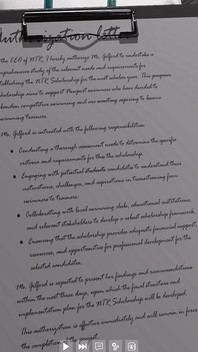 Authorization letter
the CEO of NTR, I hereby authorize Ms. Gilford to undertake a
comprehensive study of the relevant needs and requirements for
establishing the NTR Scholarship for the next scholar year. This program
scholarship aims to support Prospect swimmers who have decided to
abandon competitive swimming and are wanting aspiring to become
swimming trainers.
Ms. Gilford is entrusted with the following responsibilities:
Conducting a thorough assessment needs to determine the specific
criteria and requirements for this the scholarship.
Engaging with potential students candidates to understand their
motivations, challenges, and aspirations in transitioning from
swimmers to trainers.
Collaborating with local swimming clubs, educational institutions,
and relevant stakeholders to develop a robust scholarship framework.
Ensuring that the scholarship provides adequate financial support,
resources, and opportunities for professional development for the
selected candidates.
Ms. Gilford is expected to present her findings and recommendations
within the next three days, upon which the fund structures and
implementation plan for the NTR Scholarship will be developed.
This authorization is effective immediately and will remain in force
the completion of the project